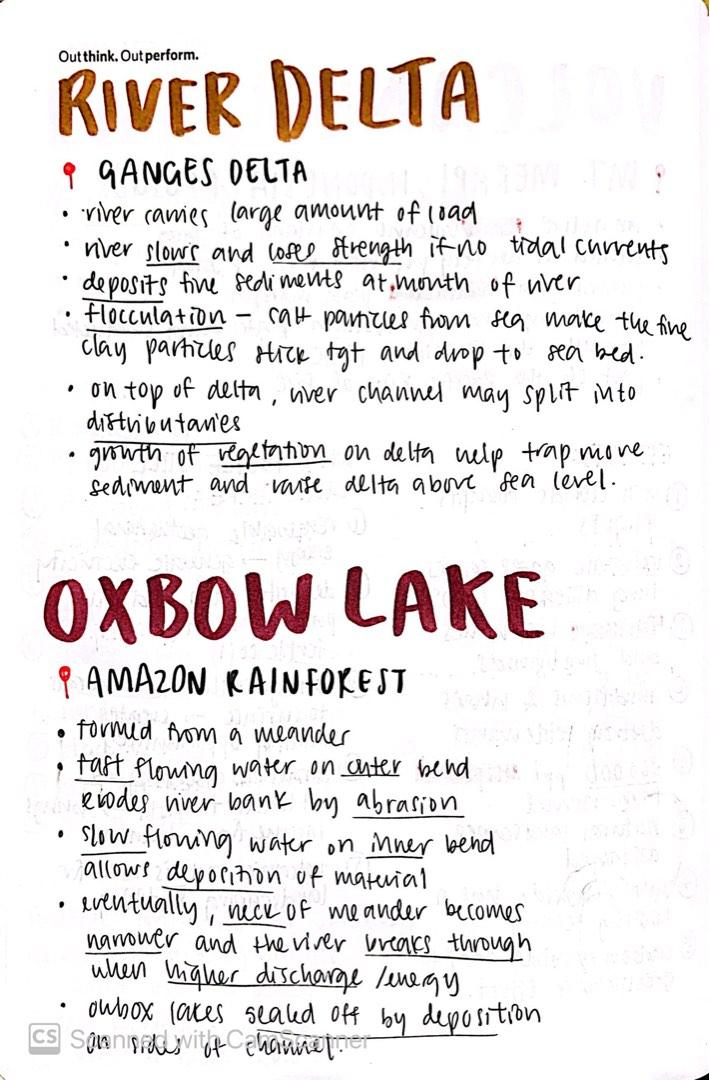 Outthink. Outperform.
RIVER DELTA
GANGES DELTA
• river carries large amount of load
• river slows and loses strength if no tidal currents
• deposits fine sediments at mouth of river
• flocculation – salt particles from sea make the fine
clay particles stick tgt and drop to sea bed.
• on top of delta, river channel may split into
distributaries
• growth of vegetation on delta help trap more
sediment and raise delta above sea level.
OXBOW LAKE
AMAZON RAINFOREST
• formed from a meander
• fast flowing water on outer bend
erodes river bank by abrasion
• slow flowing water on inner bend
allows deposition of material
• eventually, neck of meander becomes
narrower and the river breaks through
when higher discharge /energy
• owbox lakes sealed off by deposition
on sides of channel.
CS Scanned with CamScanner